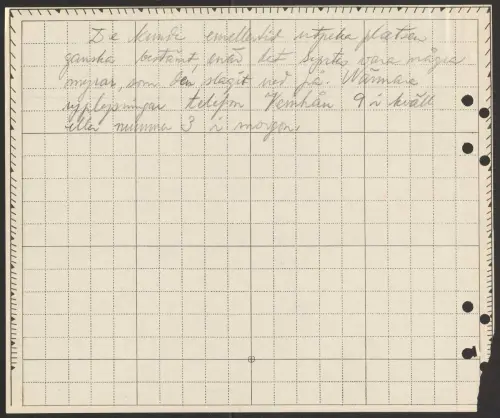 De kunde emellertid utpeka platsen
ganska bestämt enär det syntes vara några
myror, som den slagit ned på. Närmare
upplysningar telefon Hemhån 9 i kväll
eller nummer 3 i morgon.